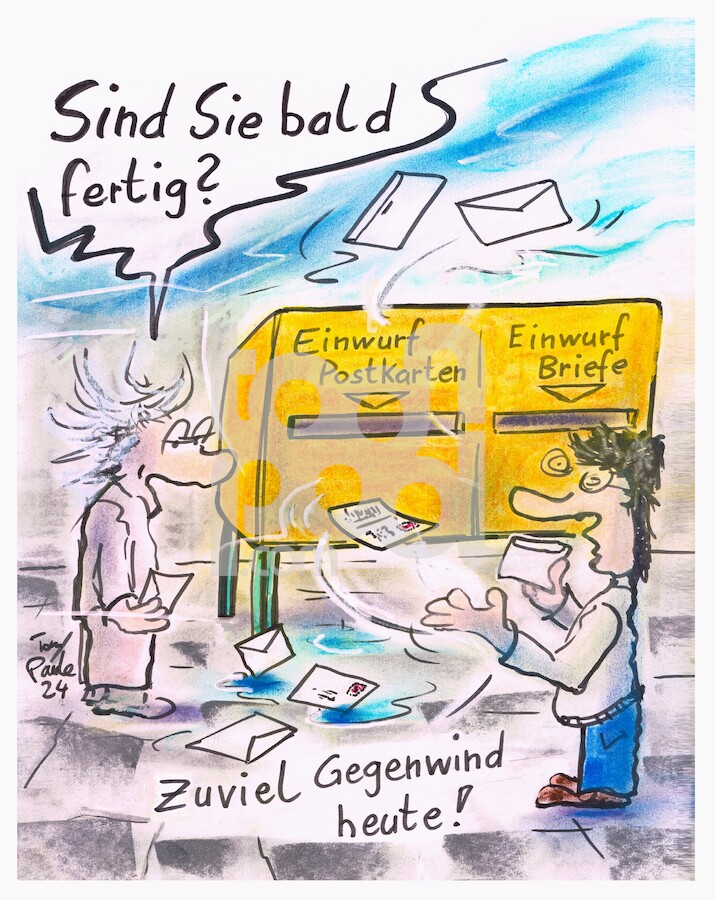 Sind Sie bald
fertig?
Einwurf
Postkarten
Einwurf
Briefe
Zuviel Gegenwind
heute!
Tony
Paule
24